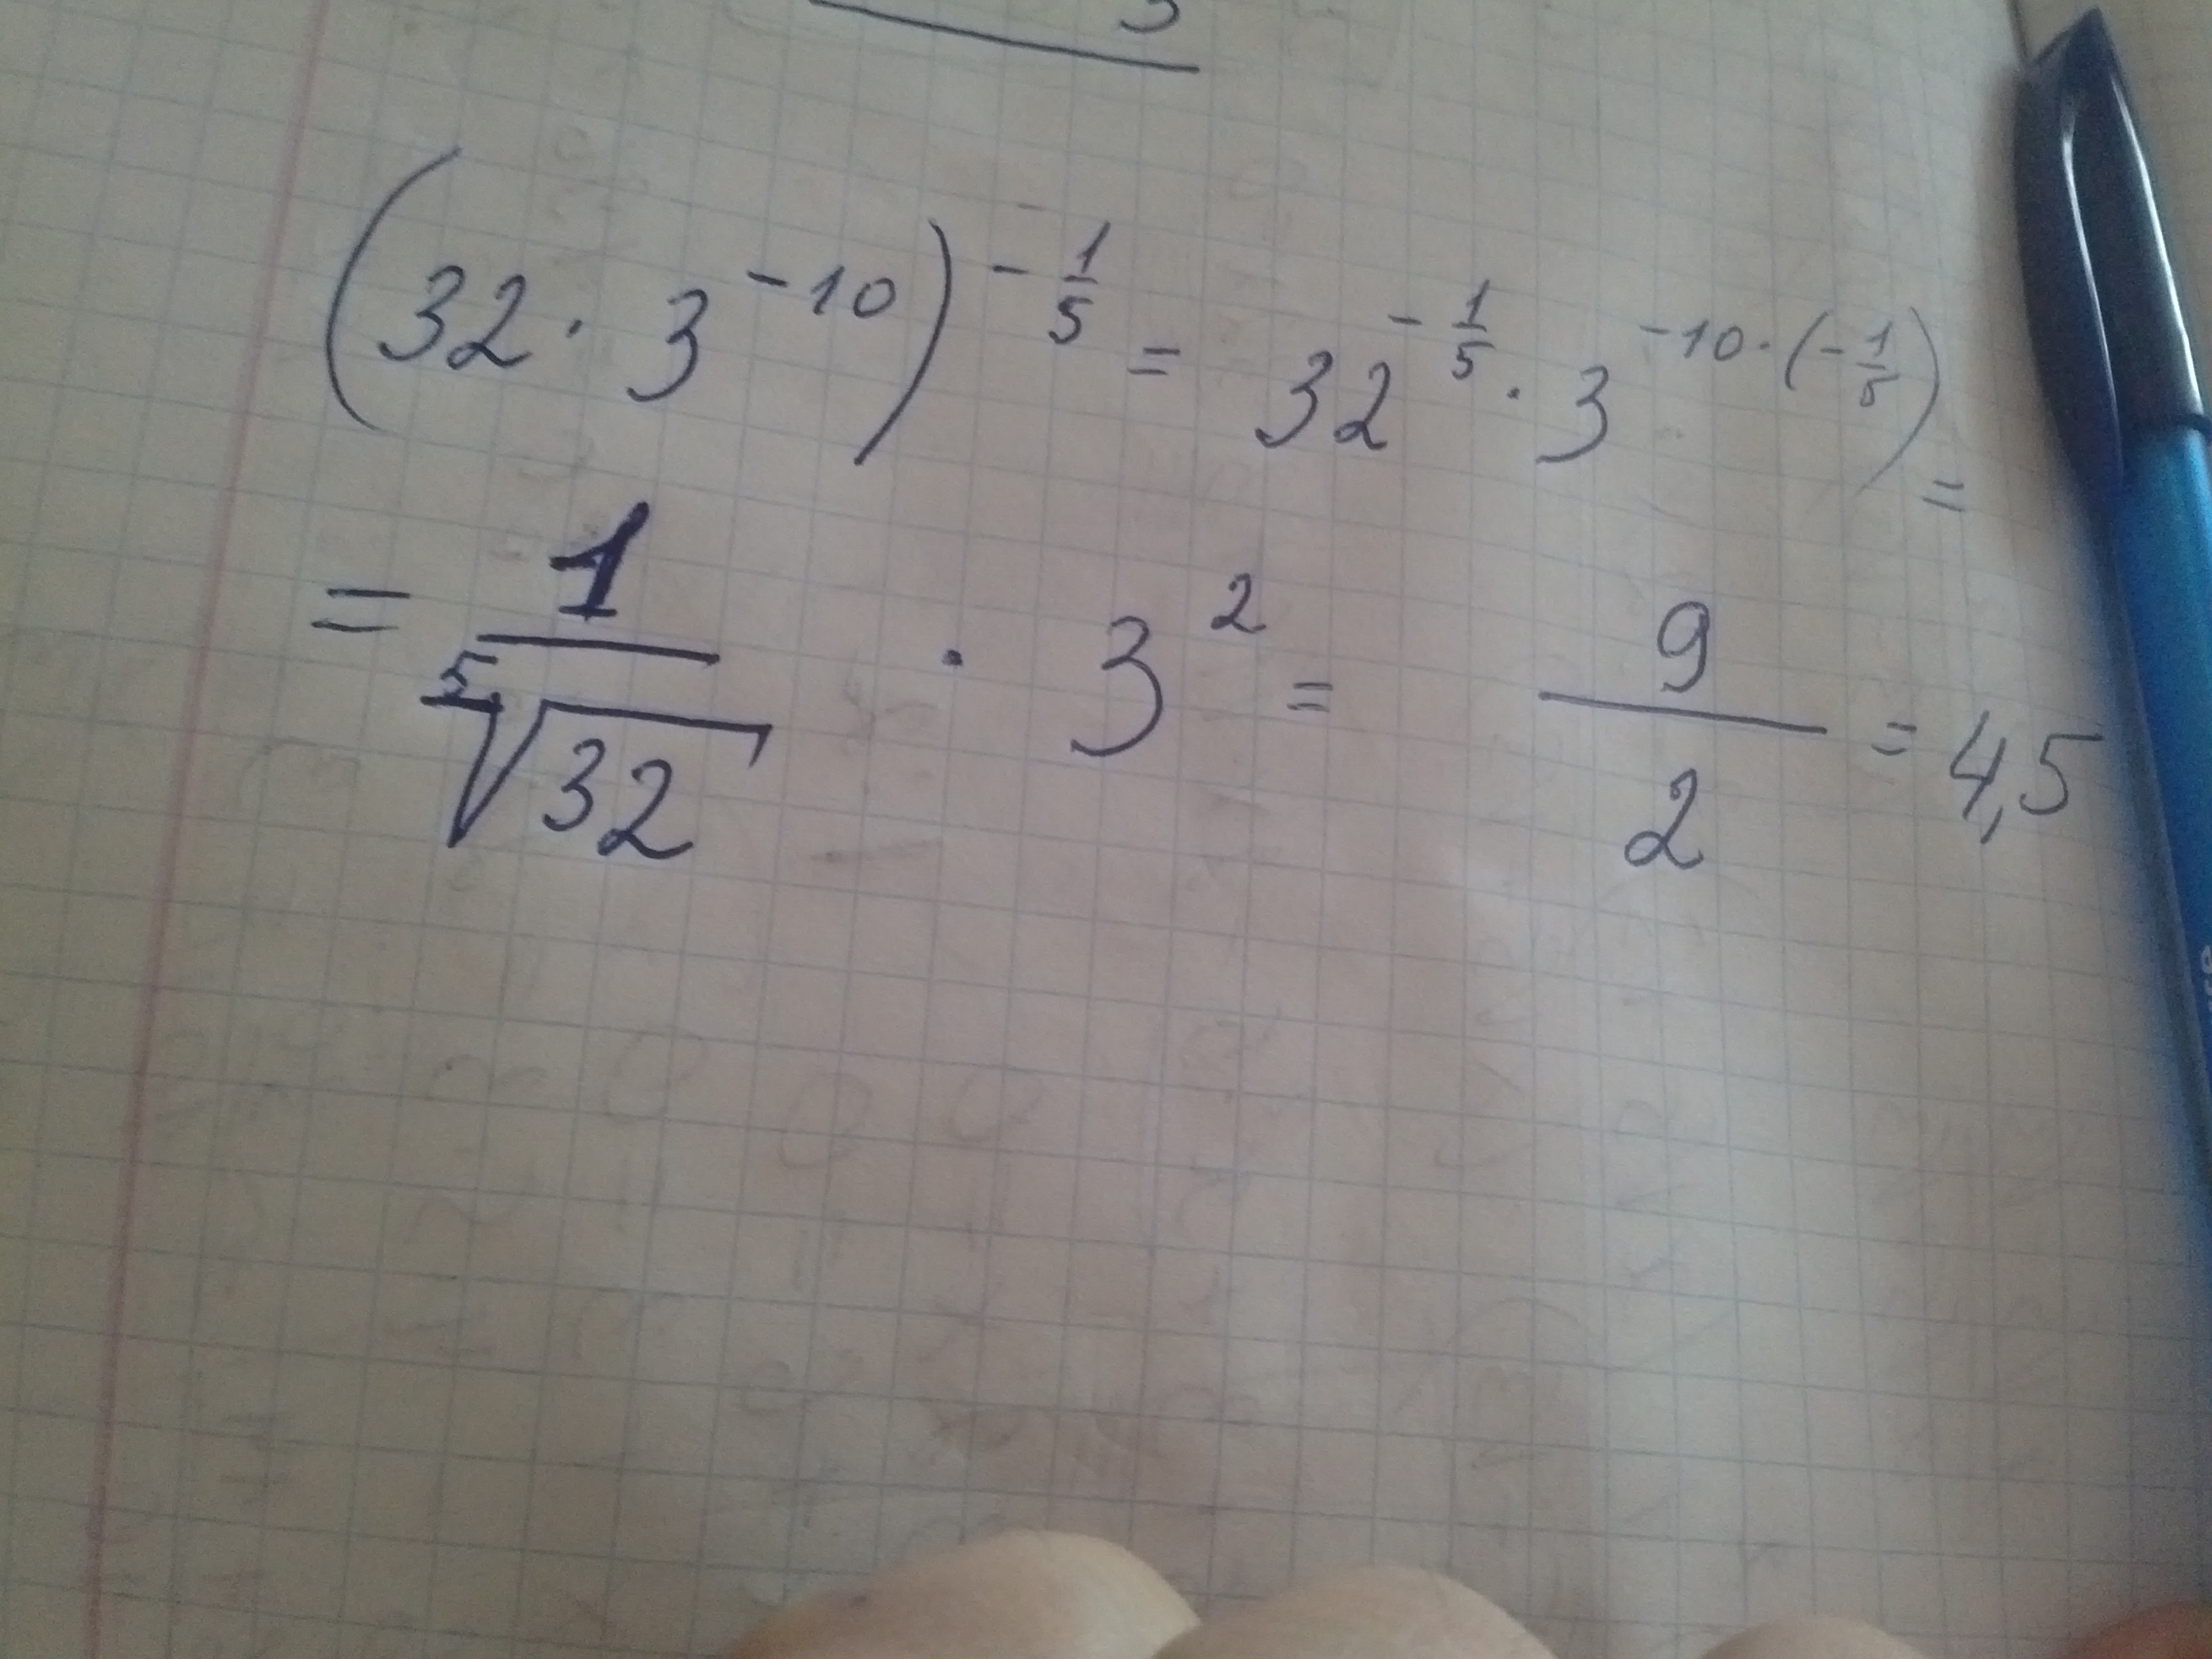 (32 · 3^{-10})^{-\frac{1}{5}} = 32^{-\frac{1}{5}} · 3^{-10 · (-\frac{1}{5})} =
= \frac{1}{\sqrt[5]{32}} · 3^2 = \frac{9}{2} = 4,5